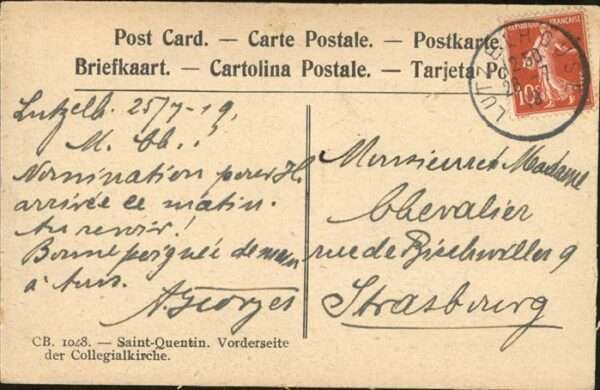 Post Card. — Carte Postale. — Postkarte.
Briefkaart. — Cartolina Postale. — Tarjeta Po
RÉPUBLIQUE FRANÇAISE
10c
LUTZELH
12-30
Lutzelh. 25/7-19.
M. Ch..!
Nomination pour H.
arrivée ce matin.
Au revoir!
Bonne poignée de main
à tous.
A. Georges
Monsieur et Madame
Chevalier
rue de Bischwiller 9
Strasbourg
CB. 1048. — Saint-Quentin. Vorderseite
der Collegialkirche.